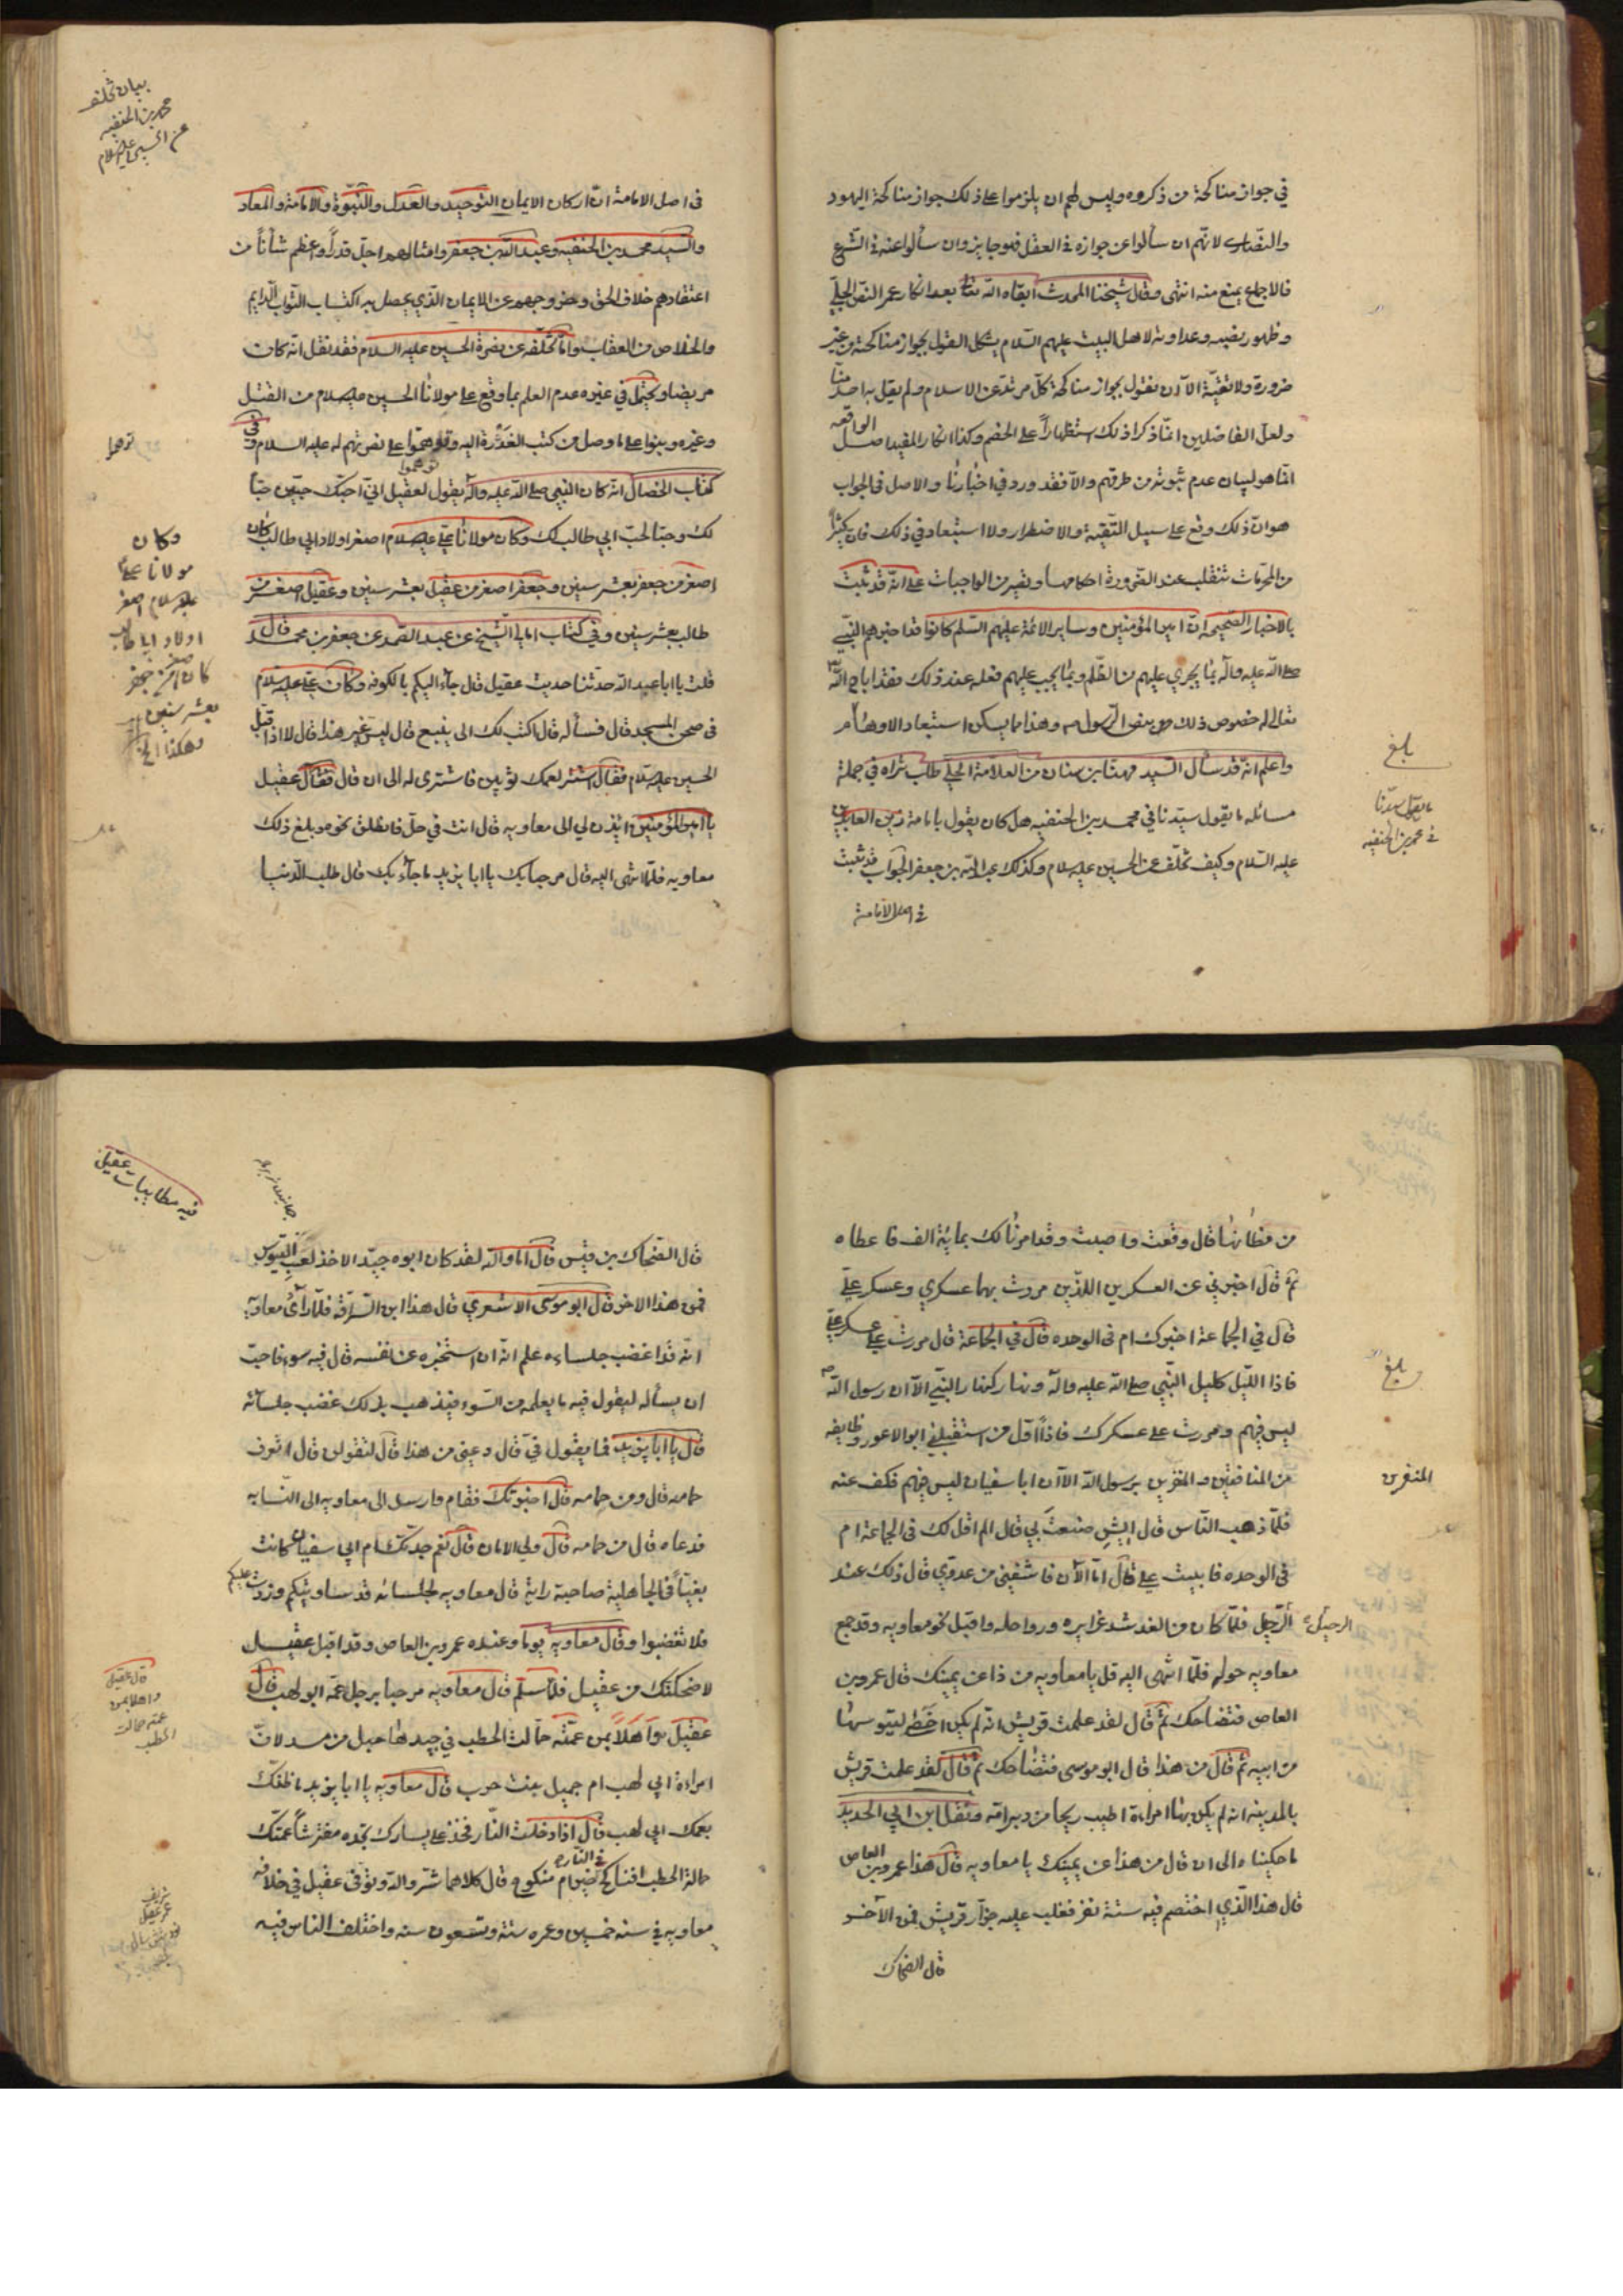 في جواز مناكحة من ذكروه وليس لهم ان يلزموا على ذلك جواز مناكحة اليهود
والنصارى لانهم ان سألوا عن جوازه في العقل فهو جايز وان سألوا عنه في الشرع
فالاجماع يمنع منه انتهى وقال شيخنا المحدث ابقاه الله تعالى بعد انكار عمر النص الجلي
وظهور نصبه وعداوته لاهل البيت عليهم السلام يشكل القول بجواز مناكحته من غير
ضرورة ولا تقية الا ان نقول بجواز مناكحة كل مرتد عن الاسلام ولم يقل به احد منا
ولعل الفاضلين انما ذكرا ذلك استظهاراً على الخصم وكذا انكار المفيد اصل الواقعه
انما هو لبيان عدم ثبوته من طرقهم والا فقد ورد في اخبارنا والاصل في الجواب
هو ان ذلك وقع على سبيل التقية والاضطرار ولا استبعاد في ذلك فان كثيراً
من المحرمات تنقلب عند الضرورة احكامها وتصير من الواجبات على انه قد ثبت
بالاخبار الصحيحه ان امير المؤمنين وساير الائمة عليهم السلم كانوا قد اخبرهم النبي
صلى الله عليه واله بما يجري عليهم من الظلم وبما يجب عليهم فعله عند ذلك فقد اباح الله
تعالى له خصوص ذلك بنص الرسول ص وهذا مما يسكن استبعاد الاوهام
واعلم انه قد سأل السيد مهنا بن سنان من العلامة الحلي طاب ثراه في جملة
مسائله ما يقول سيدنا في محمد بن الحنفيه هل كان يقول بامامة زين العابدين
عليه السلام وكيف تخلف عن الحسين عليه السلام وكذلك عبد الله بن جعفر الجواب قد ثبت
في اصل الامامة
بلغ
ما يقول سيدنا
في محمد بن الحنفيه
بيان تخلف
محمد بن الحنفيه
عن الحسين عليه السلام
في اصل الامامة ان اركان الايمان التوحيد والعدل والنبوة والامامة والمعاد
والسيد محمد بن الحنفيه وعبد الله بن جعفر وامثالهم اجل قدراً واعظم شأناً من
اعتقادهم خلاف الحق وخروجهم عن الايمان الذي يحصل به اكتساب الثواب الدايم
والخلاص من العقاب واما تخلفه عن نصرة الحسين عليه السلام فقد نقل انه كان
مريضا ويحتمل في غيره عدم العلم بما وقع على مولانا الحسين عليه السلام من القتل
وغيره وبنوا على ما وصل من كتب الغدرة اليه وتوهموا على نصرتهم له عليه السلام وفي
كتاب الخصال انه كان النبي صلى الله عليه واله يقول لعقيل اني احبك حبين حباً
لك وحبا لحب ابي طالب لك وكان مولانا علي عليه السلام اصغر اولاد ابي طالب كان
اصغر من جعفر بعشر سنين وجعفر اصغر من عقيل بعشر سنين وعقيل اصغر من
طالب بعشر سنين وفي كتاب امالي الشيخ عن عبد الصمد عن جعفر بن محمد قال
قلت يا ابا عبد الله حدثنا حديث عقيل قال جاء اليكم بالكوفه وكان علي عليه السلام
في صحن المسجد قال فسأله قال اكتب لك الى ينبع قال ليس غير هذا قال لا اذا قبل
الحسين عليه السلام فقال اشتر لعمك ثوبين فاشترى له الى ان قال فقال عقيل
يا امير المؤمنين ائذن لي الى معاويه قال انت في حل فانطلق نحوه وبلغ ذلك
معاويه فلما انتهى اليه قال مرحبا بك يا ابا يزيد ما جاء بك قال طلب الدنيا
توهموا
وكان
مولانا علي
عليه سلام اصغر
اولاد ابا طالب
كان اصغر من جعفر
بعشر سنين
وهكذا الخ
من مظانها قال وقعت واصبت وقد امرنا لك بمائة الف فاعطاه
ثم قال اخبرني عن العسكرين اللذين مررت بهما عسكري وعسكر علي
قال في الجماعة اخبرك ام في الوحده قال في الجماعة قال مررت على عسكر علي
فاذا الليل كليل النبي صلى الله عليه واله ونهار كنهار النبي الا ان رسول الله ص
ليس فيهم ومررت على عسكرك فاذا اول من استقبلني ابو الاعور وطايفه
من المنافقين والمنفرين برسول الله الا ان ابا سفيان ليس فيهم فكف عنه
فلما ذهب الناس قال ايش صنعت بي قال الم اقل لك في الجماعة ام
في الوحده فابيت علي قال اما الان فاشفني من عدوي قال ذلك عند
الرحيل فلما كان من الغد شد غرايره ورواحله واقبل نحو معاويه وقد جمع
معاويه حوله فلما انتهى اليه قل يا معاويه من ذا عن يمينك قال عمرو بن
العاص فتضاحك ثم قال لقد علمت قريش انه لم يكن احصى لتيوسها
من ابيه ثم قال من هذا قال ابو موسى فتضاحك ثم قال لقد علمت قريش
بالمدينه انه لم يكن بها امراءة اطيب ريحا من دبر امه ونقل ابن ابي الحديد
ما حكيناه الى ان قال من هذا عن يمينك يا معاويه قال هذا عمرو بن العاص
قال هذا الذي اختصم فيه ستة نفر فغلب عليه جزار قريش فمن الاخر
قال الضحاك
بلغ
المنفرين
الرحيل
فيه مطايبات عقيل
قال الضحاك بن قيس قال اما والله لقد كان ابوه جيد الاخذ لعسب التيوس
فمن هذا الاخر قال ابو موسى الاشعري قال هذا ابن السراقه فلما رأى معاويه
انه قد اغضب جلساءه علم انه ان استخبره عن نفسه قال فيه سوء فاحب
ان يسأله ليقول فيه ما يعلمه من السوء فيذهب بذلك غضب جلسائه
قال يا ابا يزيد فما يقول في قال دعني من هذا قال لتقولن قال اتعرف
حمامه قال ومن حمامه قال اخبرتك فقام وارسل الى معاويه الى النسابه
فدعاه قال من حمامه قال ولي الامان قال نعم جدتك ام ابي سفيان كانت
بغياً في الجاهلية صاحبة راية قال معاويه لجلسائه قد ساويتكم وزدت عليكم
فلا تغضبوا وقال معاويه يوما وعنده عمرو بن العاص وقد اقبل عقيل
لاضحكنك من عقيل فلما سلم قال معاويه مرحبا برجل عمه ابو لهب قال
عقيل واهلاً بمن عمته حمالت الحطب في جيدها حبل من مسد لان
امراءة ابي لهب ام جميل بنت حرب قال معاويه يا ابا يزيد ما ظنك
بعمك ابي لهب قال اذا دخلت النار فخذ على يسارك تجده مفترشاً عمتك
حمالة الحطب افناكح في النار خير ام منكوح قال كلاهما شر والله وتوفى عقيل في خلافه
معاويه في سنه خمسين وعمره ستة وتسعون سنه واختلف الناس فيه
قال عقيل
واهلا بمن
عمته حمالت
الحطب